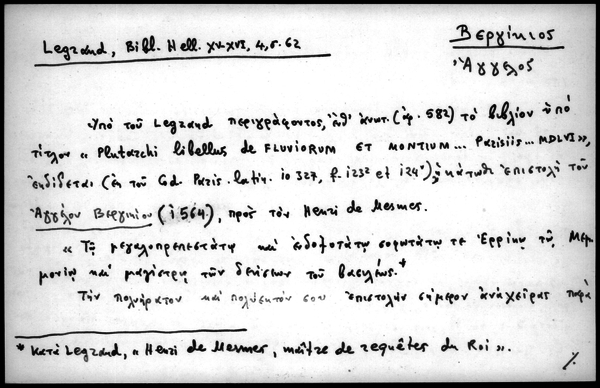 Legrand, Bibl. Hell. XV-XVI, 4, σ. 62
Βεργίκιος
Ἄγγελος
Ὑπὸ τοῦ Legrand περιγράφοντος, ἔνθ' ἀνωτ. (ἀρ. 582) τὸ βιβλίον ὑπὸ
τίτλον « Plutarchi libellus de FLUVIORUM ET MONTIUM... Parisiis... MDLVI»,
ἐκδίδεται (ἐκ τοῦ Cod. Paris. latin. 10 327, f. 123² et 124ᵛ), ἡ κάτωθι ἐπιστολὴ τοῦ
Ἀγγέλου Βεργικίου (1564), πρὸς τὸν Henri de Mesmes.
« Τῷ μεγαλοπρεπεστάτῳ καὶ ἐνδοξοτάτῳ σοφωτάτῳ τε Ἐρρίκῳ τῷ Μεμ-
μονίῳ καὶ μαγίστρῳ τῶν δεήσεων τοῦ βασιλέως.*
Τὴν πολυήρατον καὶ πολύευκτόν σου ἐπιστολὴν σήμερον ἀνὰ χεῖρας παρὰ
* Κατὰ Legrand, « Henri de Mesmes, maître de requêtes du Roi ».